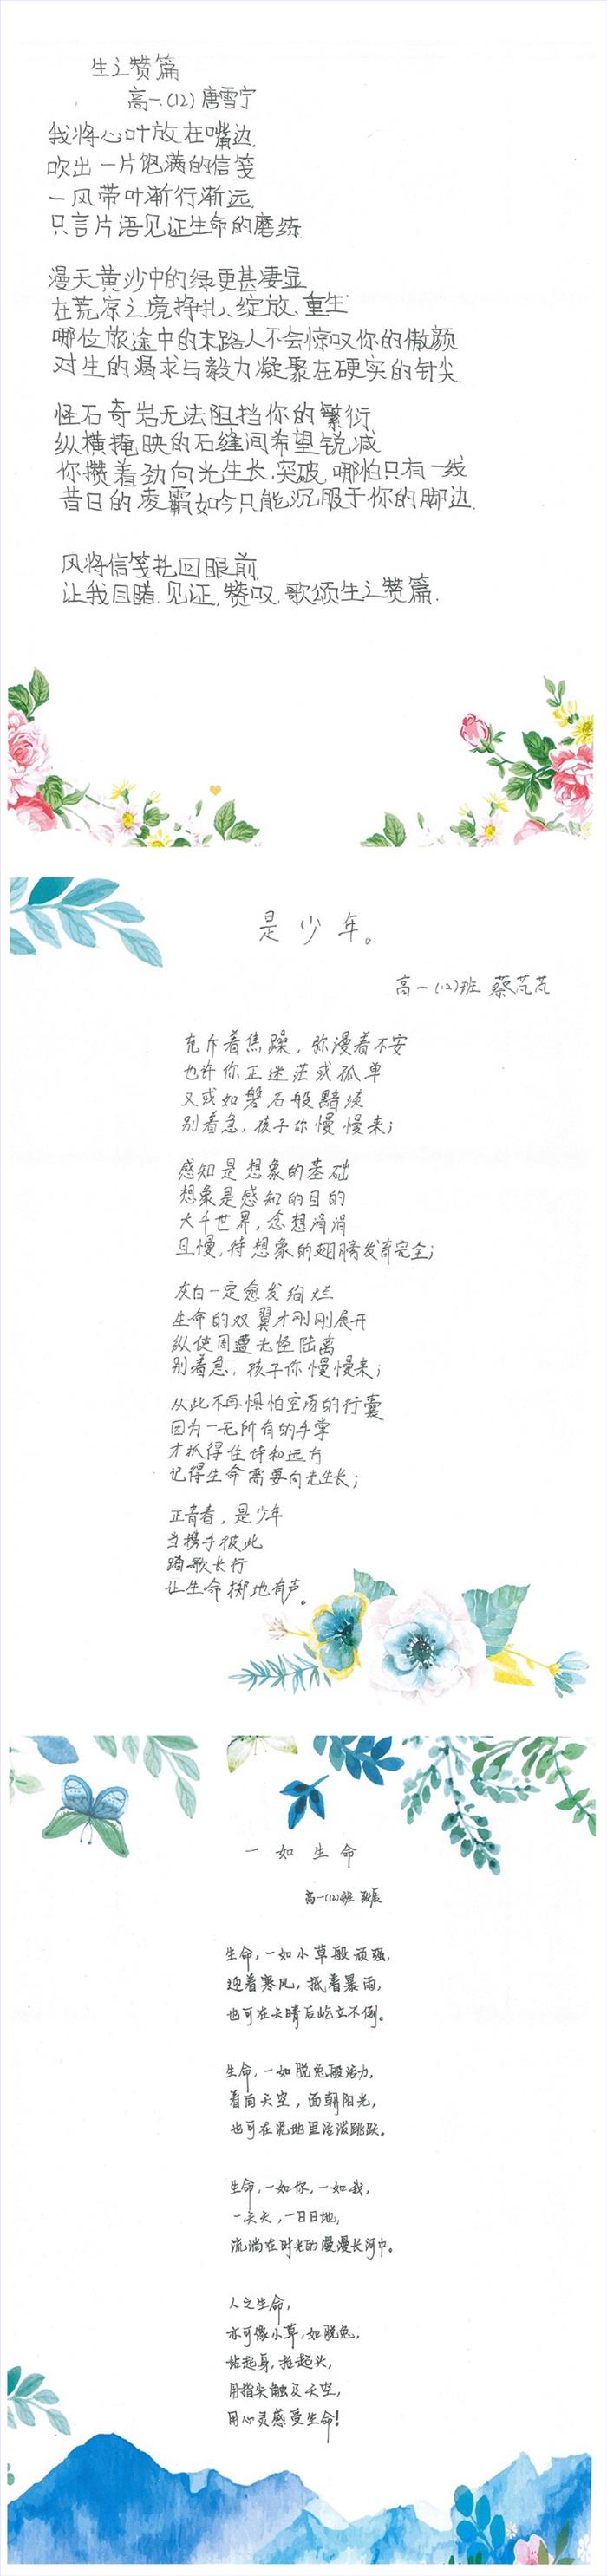 生之赞篇
高一(12)唐雪宁
我将心叶放在嘴边
吹出一片饱满的信笺
一风带叶渐行渐远
只言片语见证生命的磨练
漫天黄沙中的绿更甚凄显
在荒凉之境挣扎、绽放、重生
哪位旅途中的末路人不会惊叹你的傲颜
对生的渴求与毅力凝聚在硬实的针尖
怪石奇岩无法阻挡你的繁衍
纵横掩映的石缝间希望锐减
你攒着劲向光生长,突破,哪怕只有一线
昔日的凌霸如今只能沉服于你的脚边
风将信笺扎回眼前
让我目睹、见证、赞叹、歌颂生之赞篇.
是少年。
高一(12)班 蔡芃芃
充斥着焦躁，弥漫着不安
也许你正迷茫或孤单
又或如磐石般黯淡
别着急，孩子你慢慢来；
感知是想象的基础
想象是感知的目的
大千世界，念想涓涓
且慢，待想象的翅膀发育完全；
灰白一定愈发绚烂
生命的双翼才刚刚展开
纵使周遭光怪陆离
别着急，孩子你慢慢来；
从此不再惧怕空荡的行囊
因为一无所有的手掌
才抓得住诗和远方
记得生命需要向光生长；
正青春，是少年
当携手彼此
踏歌长行
让生命掷地有声。
一如生命
高一(12)班 张辰
生命，一如小草般顽强，
迎着寒风，抵着暴雨，
也可在天晴后屹立不倒。
生命，一如脱兔般活力，
看向天空，面朝阳光，
也可在泥地里活泼跳跃。
生命，一如你，一如我，
一天天，一日日地，
流淌在时光的漫漫长河中。
人之生命，
亦可像小草，如脱兔，
站起身，抬起头，
用指尖触及天空，
用心灵感受生命！